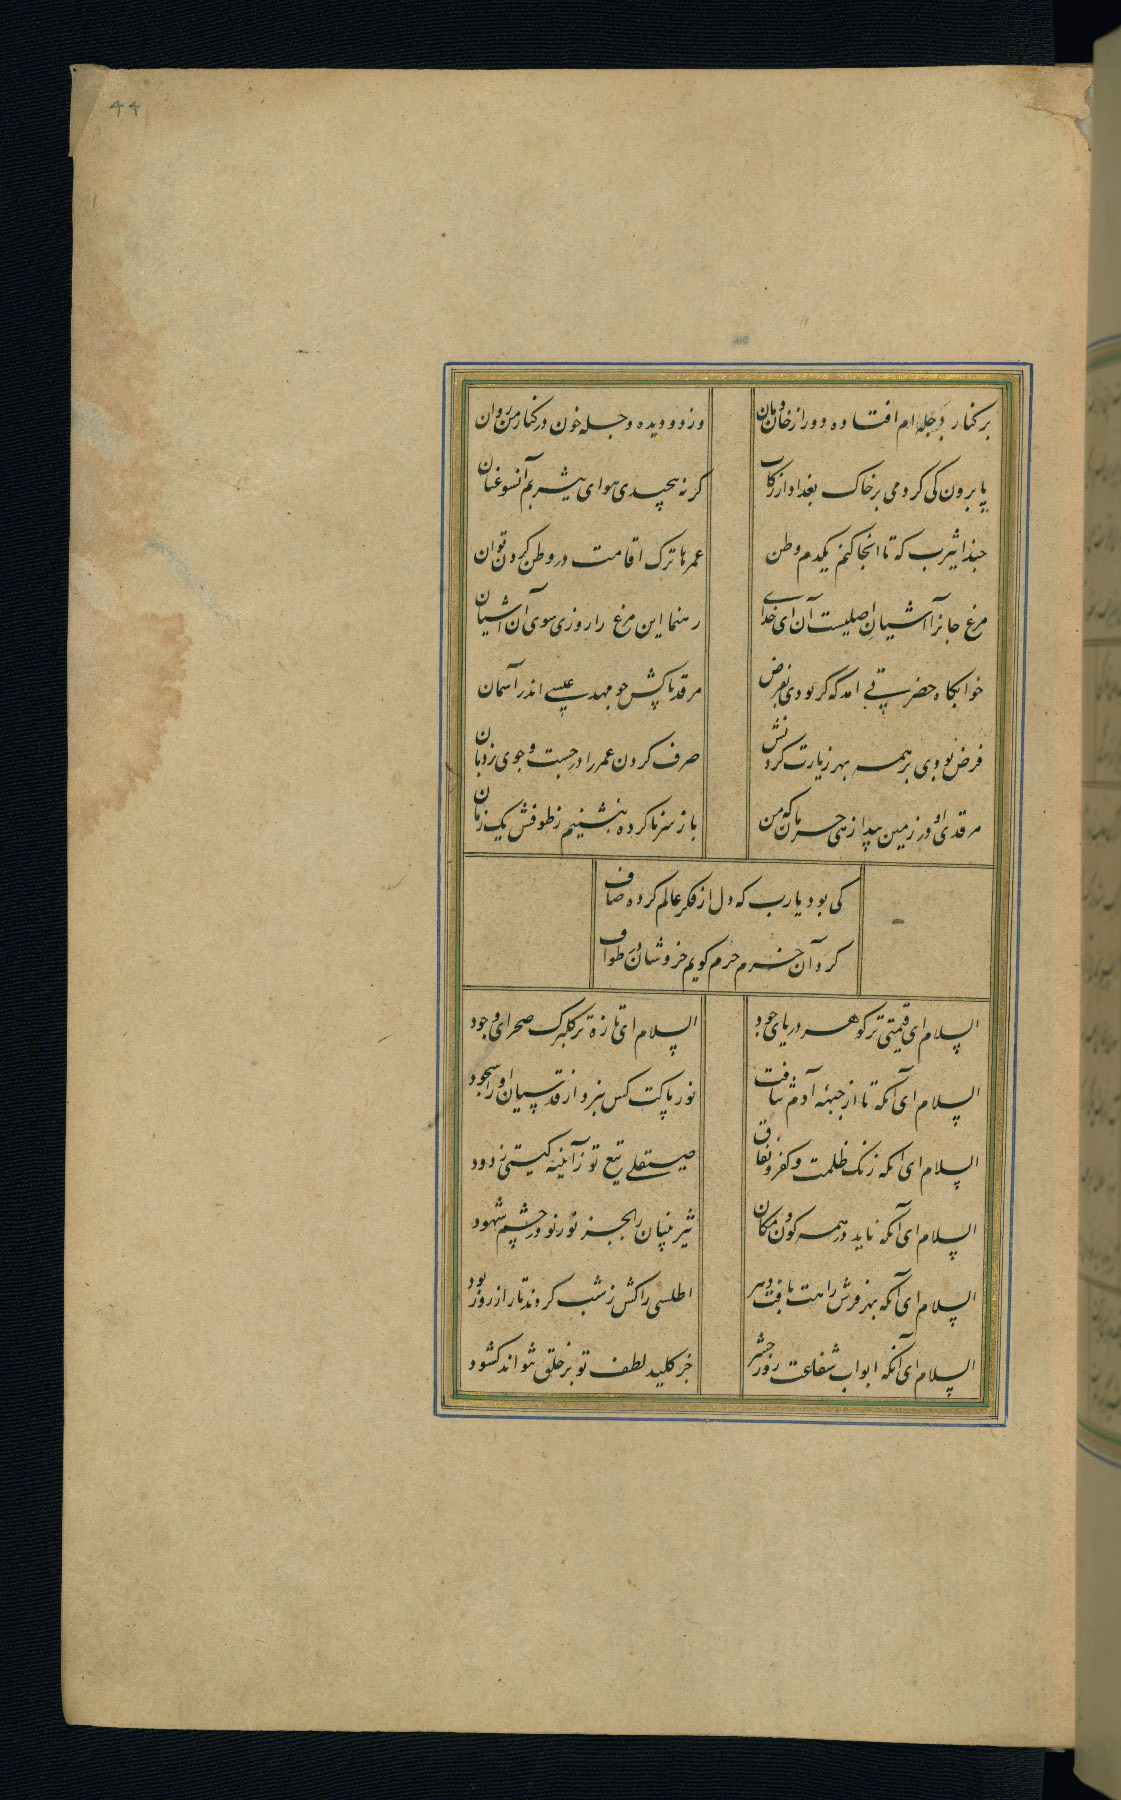 ۴۴
بر کنار دجله‌ام افتاده دور از خان و مان
وز دو دیده دجله خون در کنار من روان
پا برون کی کردمی بر خاک بغداد از رکاب
کر نه پیچیدی هوای یثربم آنسو عنان
حبذا یثرب که تا آنجا کنم یکدم وطن
عمرها ترک اقامت در وطن کردن توان
مرغ جانرا آشیان اصلیست آن ای خدای
رهنما این مرغ را روزی سوی آن آشیان
خوابکاه حضرتی آمد که گر بودی بفرض
مرقد پاکش چو مهد عیسی اندر آسمان
فرض بودی بر همه بهر زیارت کردنش
صرف کردن عمر را در جست و جوی نردبان
مرقد او در زمین پیدا زهی حرمان که من
باز سر نا کرده بنشینم ز طوفش یک زمان
کی بود یارب که دل از فکر عالم کرده صاف
کرد آن خرم حرم کویم خروشان در طواف
السلام ای قیمتی تر کوهر دریای جود
السلام ای تازه تر کلبرک صحرای وجود
السلام ای آنکه تا از جبهه آدم نتافت
نور پاکت کس نبرد از قدسیان او را سجود
السلام ای آنکه زنک ظلمت و کفر و نفاق
صیقلی تیغ تو ز آئینه کیتی زدود
السلام ای آنکه ناید در همه کون و مکان
تیزبینان را بجز نور تو در چشم شهود
السلام ای آنکه بهر فرش راهت بافت دهر
اطلسی را کش ز شب کردند تار از روز پود
السلام ای آنکه ابواب شفاعت روز حشر
جز کلید لطف تو بر خلق نتواند کشود